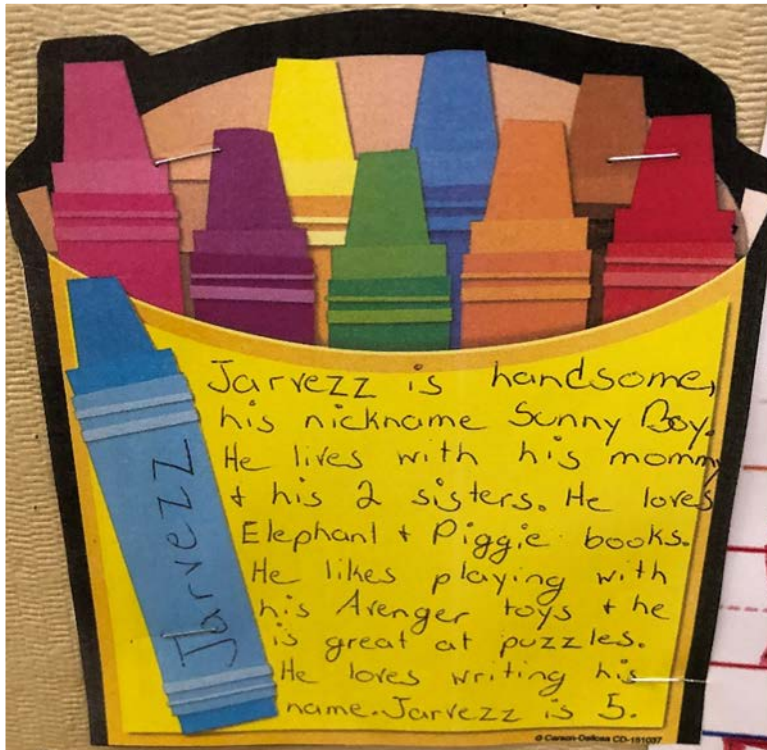 Jarvezz is handsome,
his nickname Sunny Boy.
He lives with his mommy
+ his 2 sisters. He loves
Elephant + Piggie books.
He likes playing with
his Avenger toys + he
is great at puzzles.
He loves writing his
name. Jarvezz is 5.
Jarvezz
© Carson-Dellosa CD-151037